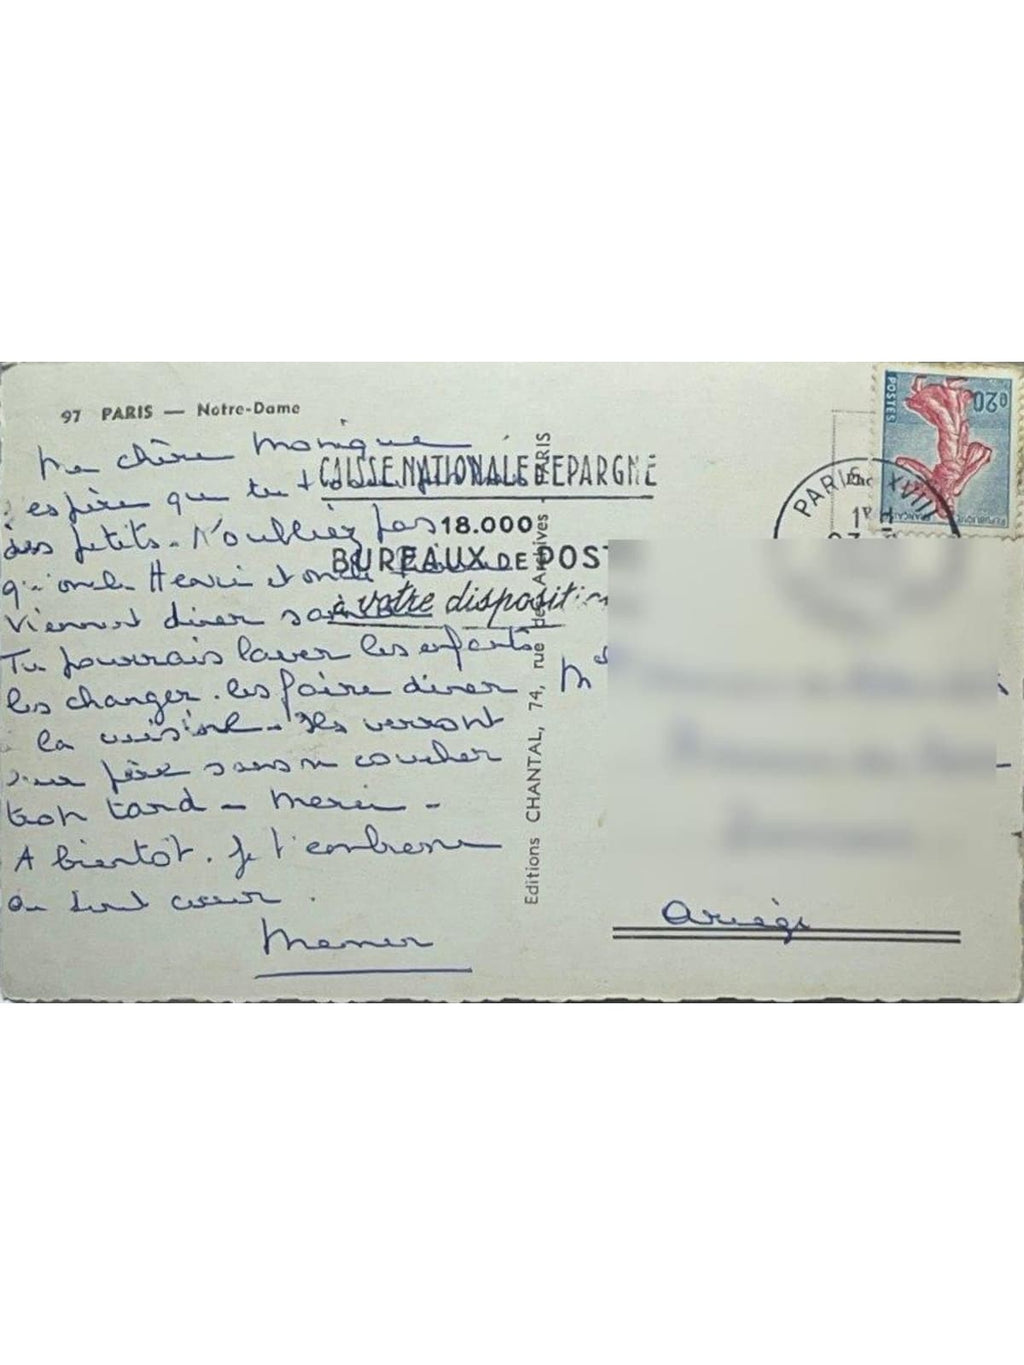 97 PARIS — Notre-Dame
Ma chère Monique
espère que tu
des petits. N'oubliez pas
qu'oncle Henri et oncle
viennent diner samedi
Tu pourrais laver les enfants
les changer. les faire diner
la cuisine. Ils verront
leur père sans se coucher
trop tard — merci -
A bientôt. Je t'embrasse
de tout cœur.
CAISSE NATIONALE D'EPARGNE
18.000
BUREAUX DE POST
à votre disposition
Editions CHANTAL, 74, rue des Archives - PARIS
POSTES
0,20
REPUBLIQUE FRANCAISE
PARIS XVIII
M
Ariège